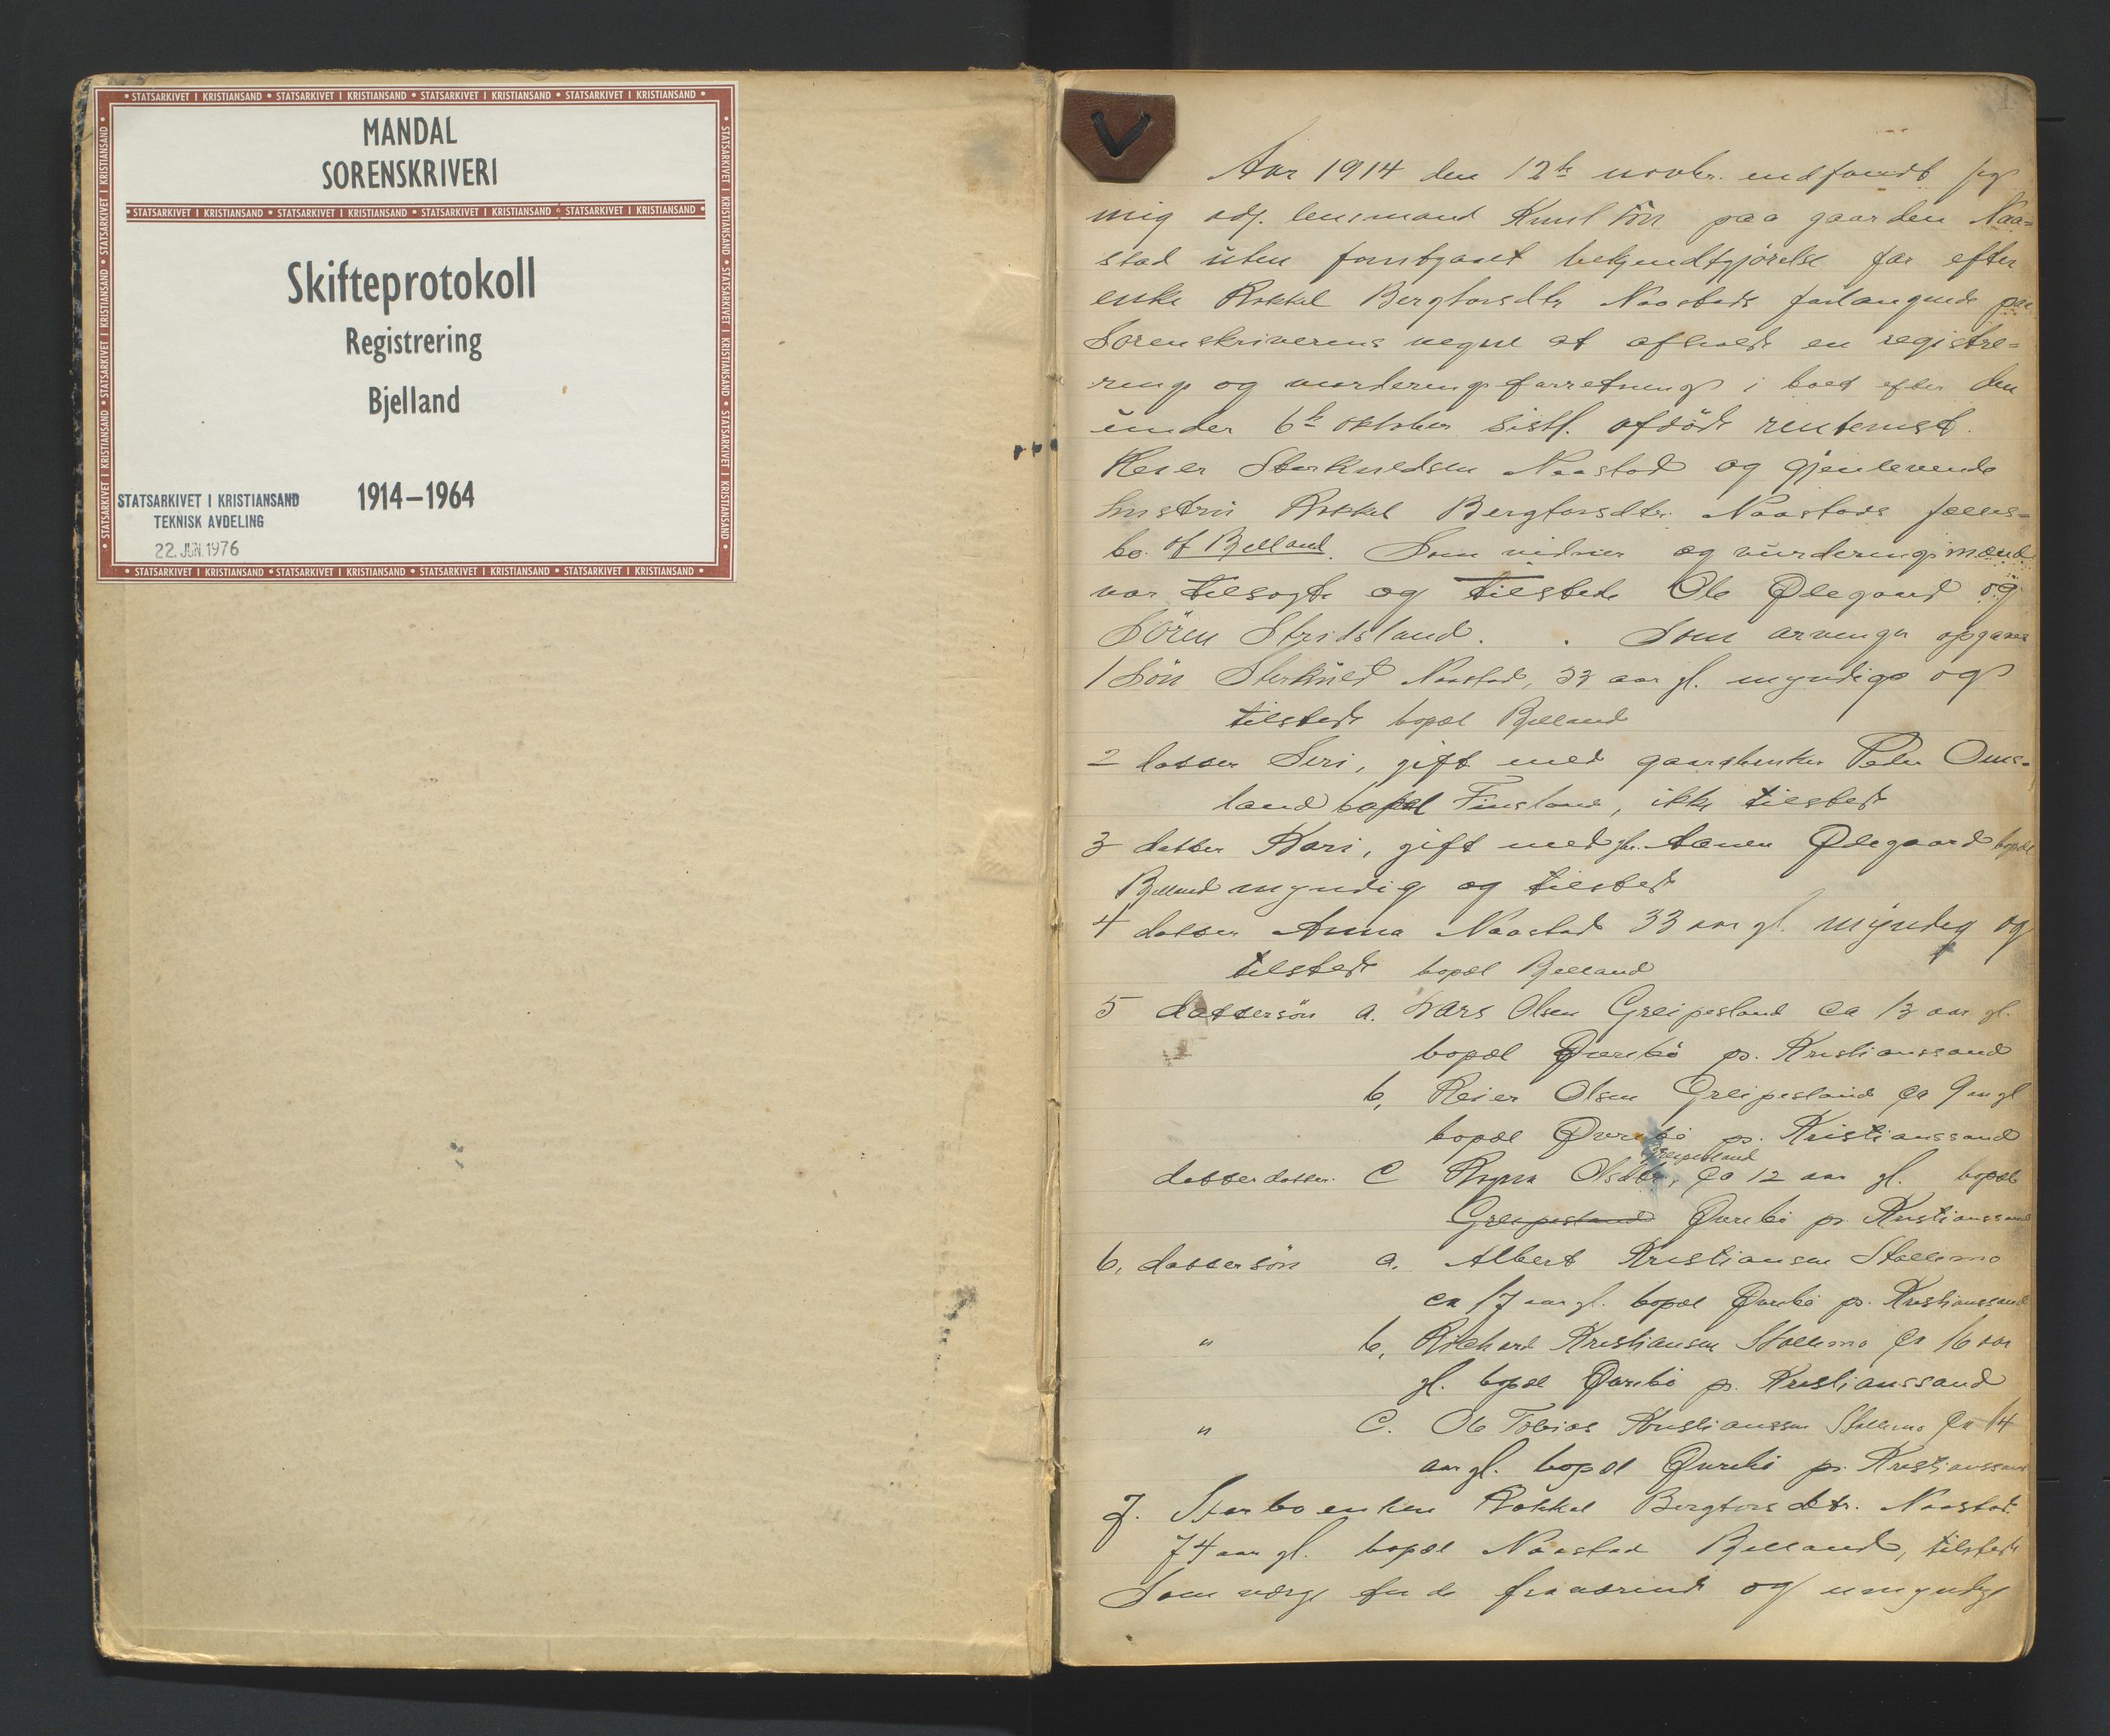 MANDAL
SORENSKRIVERI
Skifteprotokoll
Registrering
Bjelland
1914–1964
STATSARKIVET I KRISTIANSAND
TEKNISK AVDELING
22. JUN. 1976
• STATSARKIVET I KRISTIANSAND • STATSARKIVET I KRISTIANSAND • STATSARKIVET I KRISTIANSAND • STATSARKIVET I KRISTIANSAND •
1
Aar 1914 den 12te novbr. indfandt jeg
mig adj. lensmand Knut paa gaarden Naa=
stad uten bekjendtgjörelse for efter
enke Rakkel Bergtorsdtr Naastads forlangende paa
Sorenskriverens vegne at afholde en registre=
ring og vurderingsforretning i boet efter den
under 6te oktober sistl. afdöde rentenist.
Reier Sterkuldsen Naastad og gjenlevende
hustru Rakkel Bergtorsdtr. Naastads fælles=
bo. af Bjelland. Som vidner og vurderingsmænd
var tilsagte og tilstede Ole Ødegaard og
Sören Stridsland. . Som arvinger opgaves
1 Sön Sterkuld Naastad, 33 aar gl. myndig og
tilstede bopæl Bjelland
2 datter Siri, gift med gaardbruker Peder Oms=
land bopæl Finsland, ikke tilstede
3 datter Kari, gift med gbr. Aanen Ødegaard bopæl
Bjelland myndig og tilstede
4 datter Anna Naastad 33 aar gl. myndig og
tilstede bopæl Bjelland
5 dattersön a. Lars Olsen Greipesland ca 13 aar gl.
bopæl Øvrebö pr. Kristianssand
b, Reier Olsen Greipesland ca 9 aar gl
bopæl Øvrebö pr. Kristianssand
Greipesland
datterdatter. C Ragna Olsdtr, ca 12 aar gl. bopæl
Greipesland Øvrebö pr Kristianssand
6, dattersön a. Albert Kristiansen Stallemo
ca 17 aar gl. bopæl Øvrebö pr. Kristianssand
" b, Rickard Kristiansen Stallemo ca 16 aar
gl. bopæl Øvrebö pr. Kristianssand
" C. Ole Tobias Kristianssen Stallemo ca 14
aar gl. bopæl Øvrebö pr. Kristianssand
7. Sterboenken Rakkel Bergtorsdtr. Naastad
74 aar gl. bopæl Naastad Bjelland, tilstede
Som værge for de fraværende og umyndige